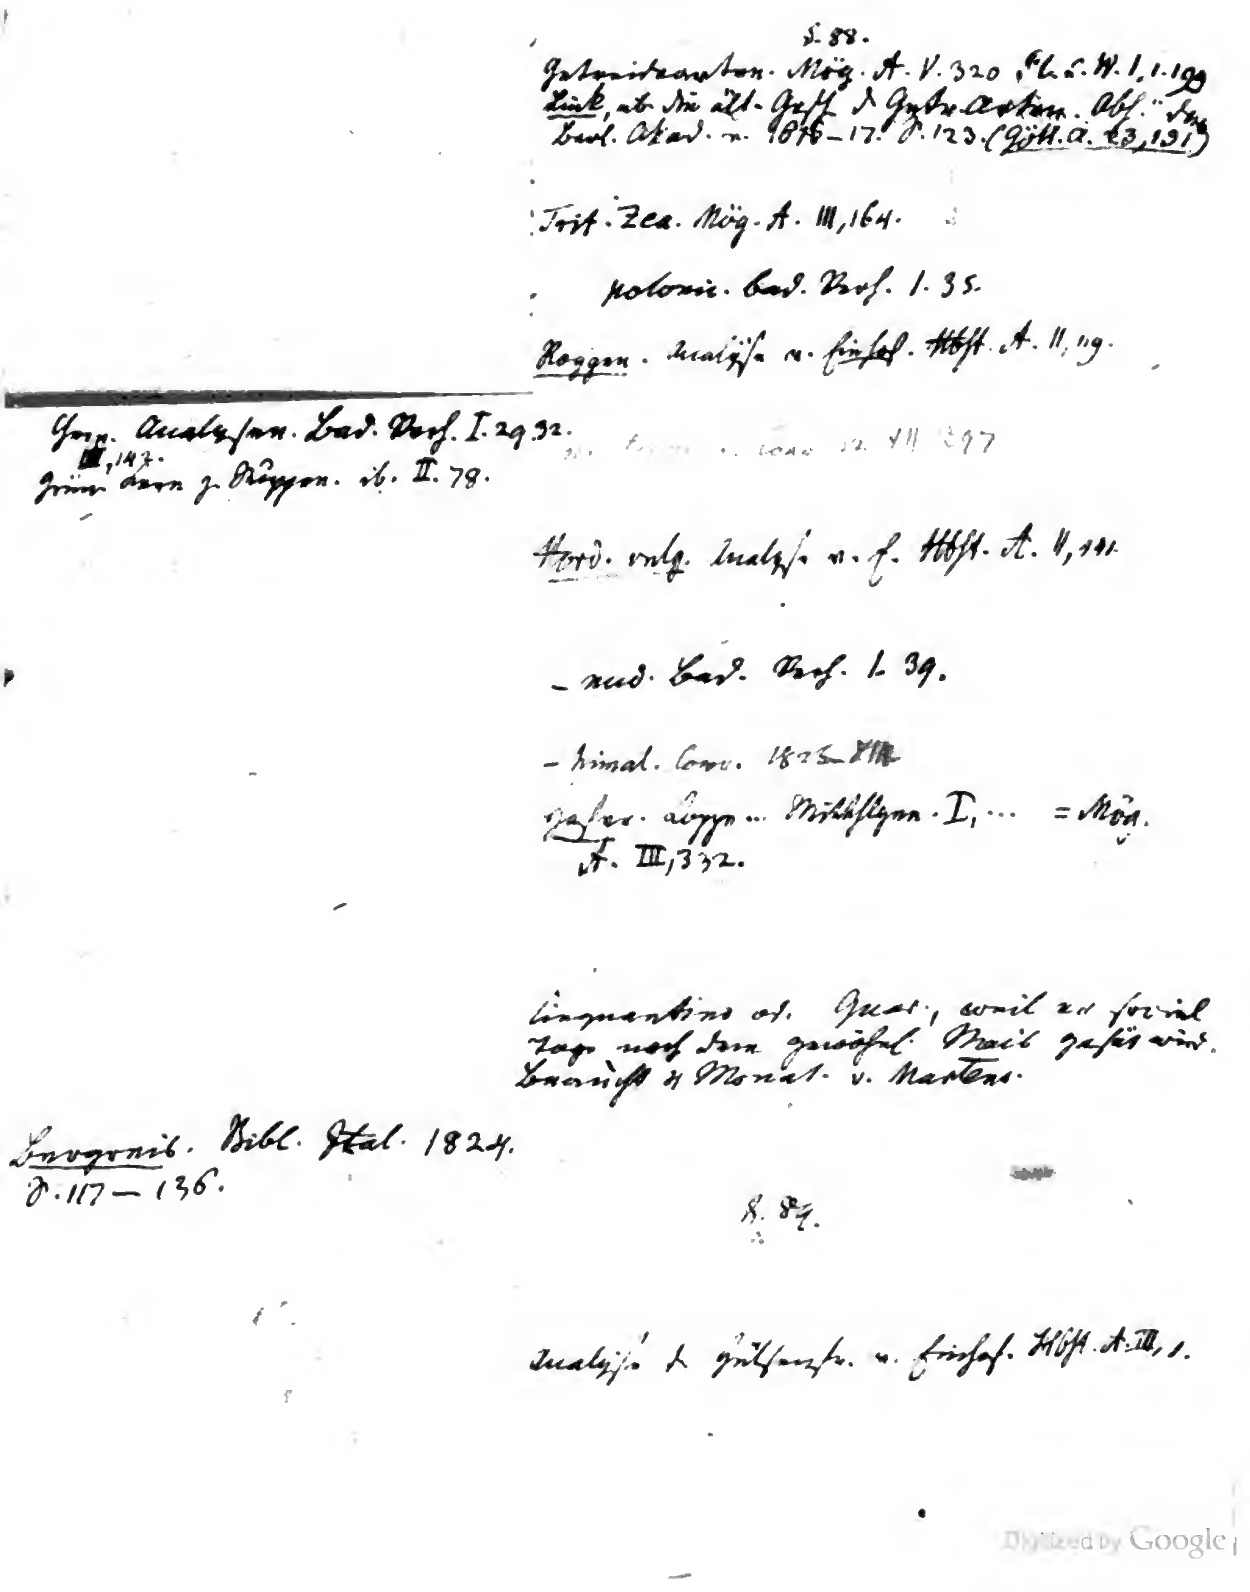 S. 88.
Getreidearten. Mög. A. V. 320, Fl. u. W. I, 1. 199
Link, üb. die ält. Gesch. d. Getr. Arten. Abh. der
Berl. Akad. v. 1816–17. S. 123. (Gött. A. 23, 131)
Trit. Zea. Mög. A. III, 164.
polonic. Bad. Verh. I. 35.
Roggen. Analyse v. Einhof. Hbst. A. II, 119.
Chem. Analysen. Bad. Verh. I. 29. 32.
III, 147.
Grüne Kern z. Suppen. ib. II. 78.
1897
Hord. vulg. Analyse v. E. Hbst. A. II, 141.
– nud. Bad. Verh. I. 39.
– himal. Conv. 1823
Hafer. Mitthlgen. I, ... = Mög.
A. III, 332.
Cinquantino od. Quar., weil er soviel
Tage nach dem gewöhnl. Mais gesät wird.
Braucht 4 Monat. v. Martens.
Bergreis. Bibl. Ital. 1824.
S. 117 – 136.
S. 89.
Analyse d. Hülsenfr. v. Einhof. Hbst. A. III, 1.
Digitized by Google